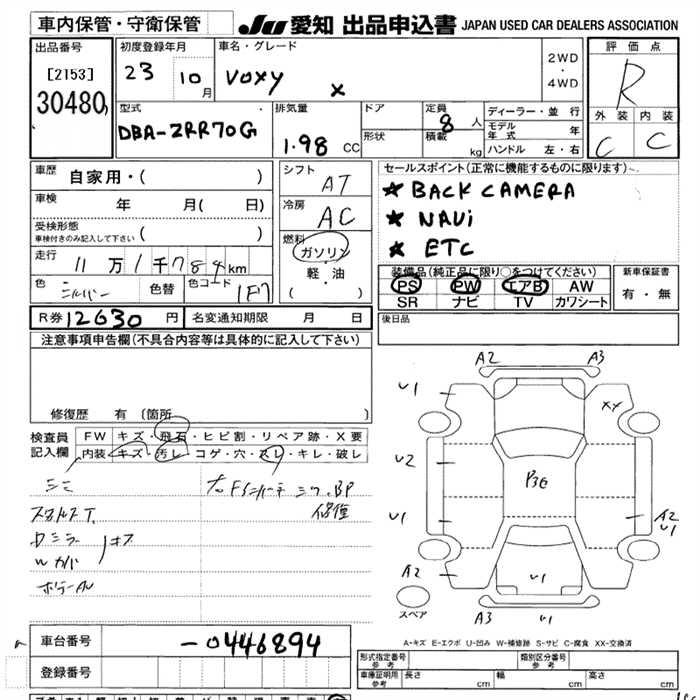 車内保管・守衛保管 JU 愛知 出品申込書 JAPAN USED CAR DEALERS ASSOCIATION
出品番号 [2153] 30480
初度登録年月 23 10月
車名・グレード VOXY X
2WD・4WD
評価点 R
外装 内装 C C
型式 DBA-ZRR70G
排気量 1.98 CC
ドア
形状
定員 8人
積載 kg
ディーラー・並行
モデル年式 年
ハンドル 左・右
車歴 自家用・( )
車検 年 月( 日)
受検形態
車検付きのみ記入して下さい ( )
走行 11万1千784km
色 シルバー 色替 色コード 1F7
シフト AT
冷房 AC
燃料 ガソリン
・
軽・油
( )
セールスポイント(正常に機能するものに限ります)
★ BACK CAMERA
★ NAVi
★ ETC
装備品(純正品に限り○をつけてください)
PS PW エアB AW
SR ナビ TV カワシート
新車保証書
有・無
R券 12630 円 名変通知期限 月 日
後日品
注意事項申告欄(不具合内容等は具体的に記入して下さい)
修復歴 有(箇所 )
検査員記入欄
FW キズ・飛石・ヒビ割・リペア跡・X要
内装 キズ・汚レ・コゲ・穴・スレ・キレ・破レ
シミ
右Fインナー シワ.BP
修理
Wカバー
A2 A3
U1 XY
U2 P36
U1 A2 U1
A2 U1
スペア A3 U1
A-キズ E-エクボ U-凹み W-補修跡 S-サビ C-腐食 XX-交換済
車台番号 -0446894
登録番号
形式指定番号 参考 類別区分番号 参考
車庫証明用 参考 長さ cm 幅 cm 高さ cm